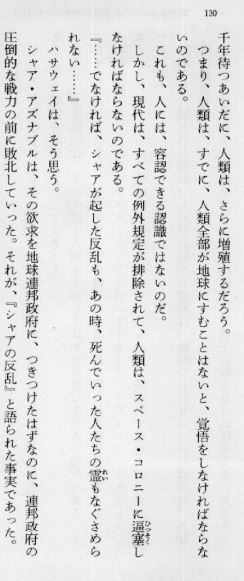 130
千年待つあいだに、人類は、さらに増殖するだろう。
つまり、人類は、すでに、人類全部が地球にすむことはないと、覚悟をしなければならな
いのである。
これも、人には、容認できる認識ではないのだ。
しかし、現代は、すべての例外規定が排除されて、人類は、スペース・コロニーに逼塞し
なければならないのである。
『……でなければ、シャアが起した反乱も、あの時、死んでいった人たちの霊もなぐさめら
れない……』
ハサウェイは、そう思う。
シャア・アズナブルは、その欲求を地球連邦政府に、つきつけたはずなのに、連邦政府の
圧倒的な戦力の前に敗北していった。それが、『シャアの反乱』と語られた事実であった。